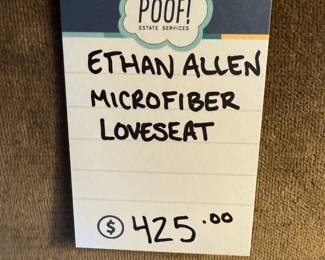 POOF!
ESTATE SERVICES
ETHAN ALLEN
MICROFIBER
LOVESEAT
$ 425.00